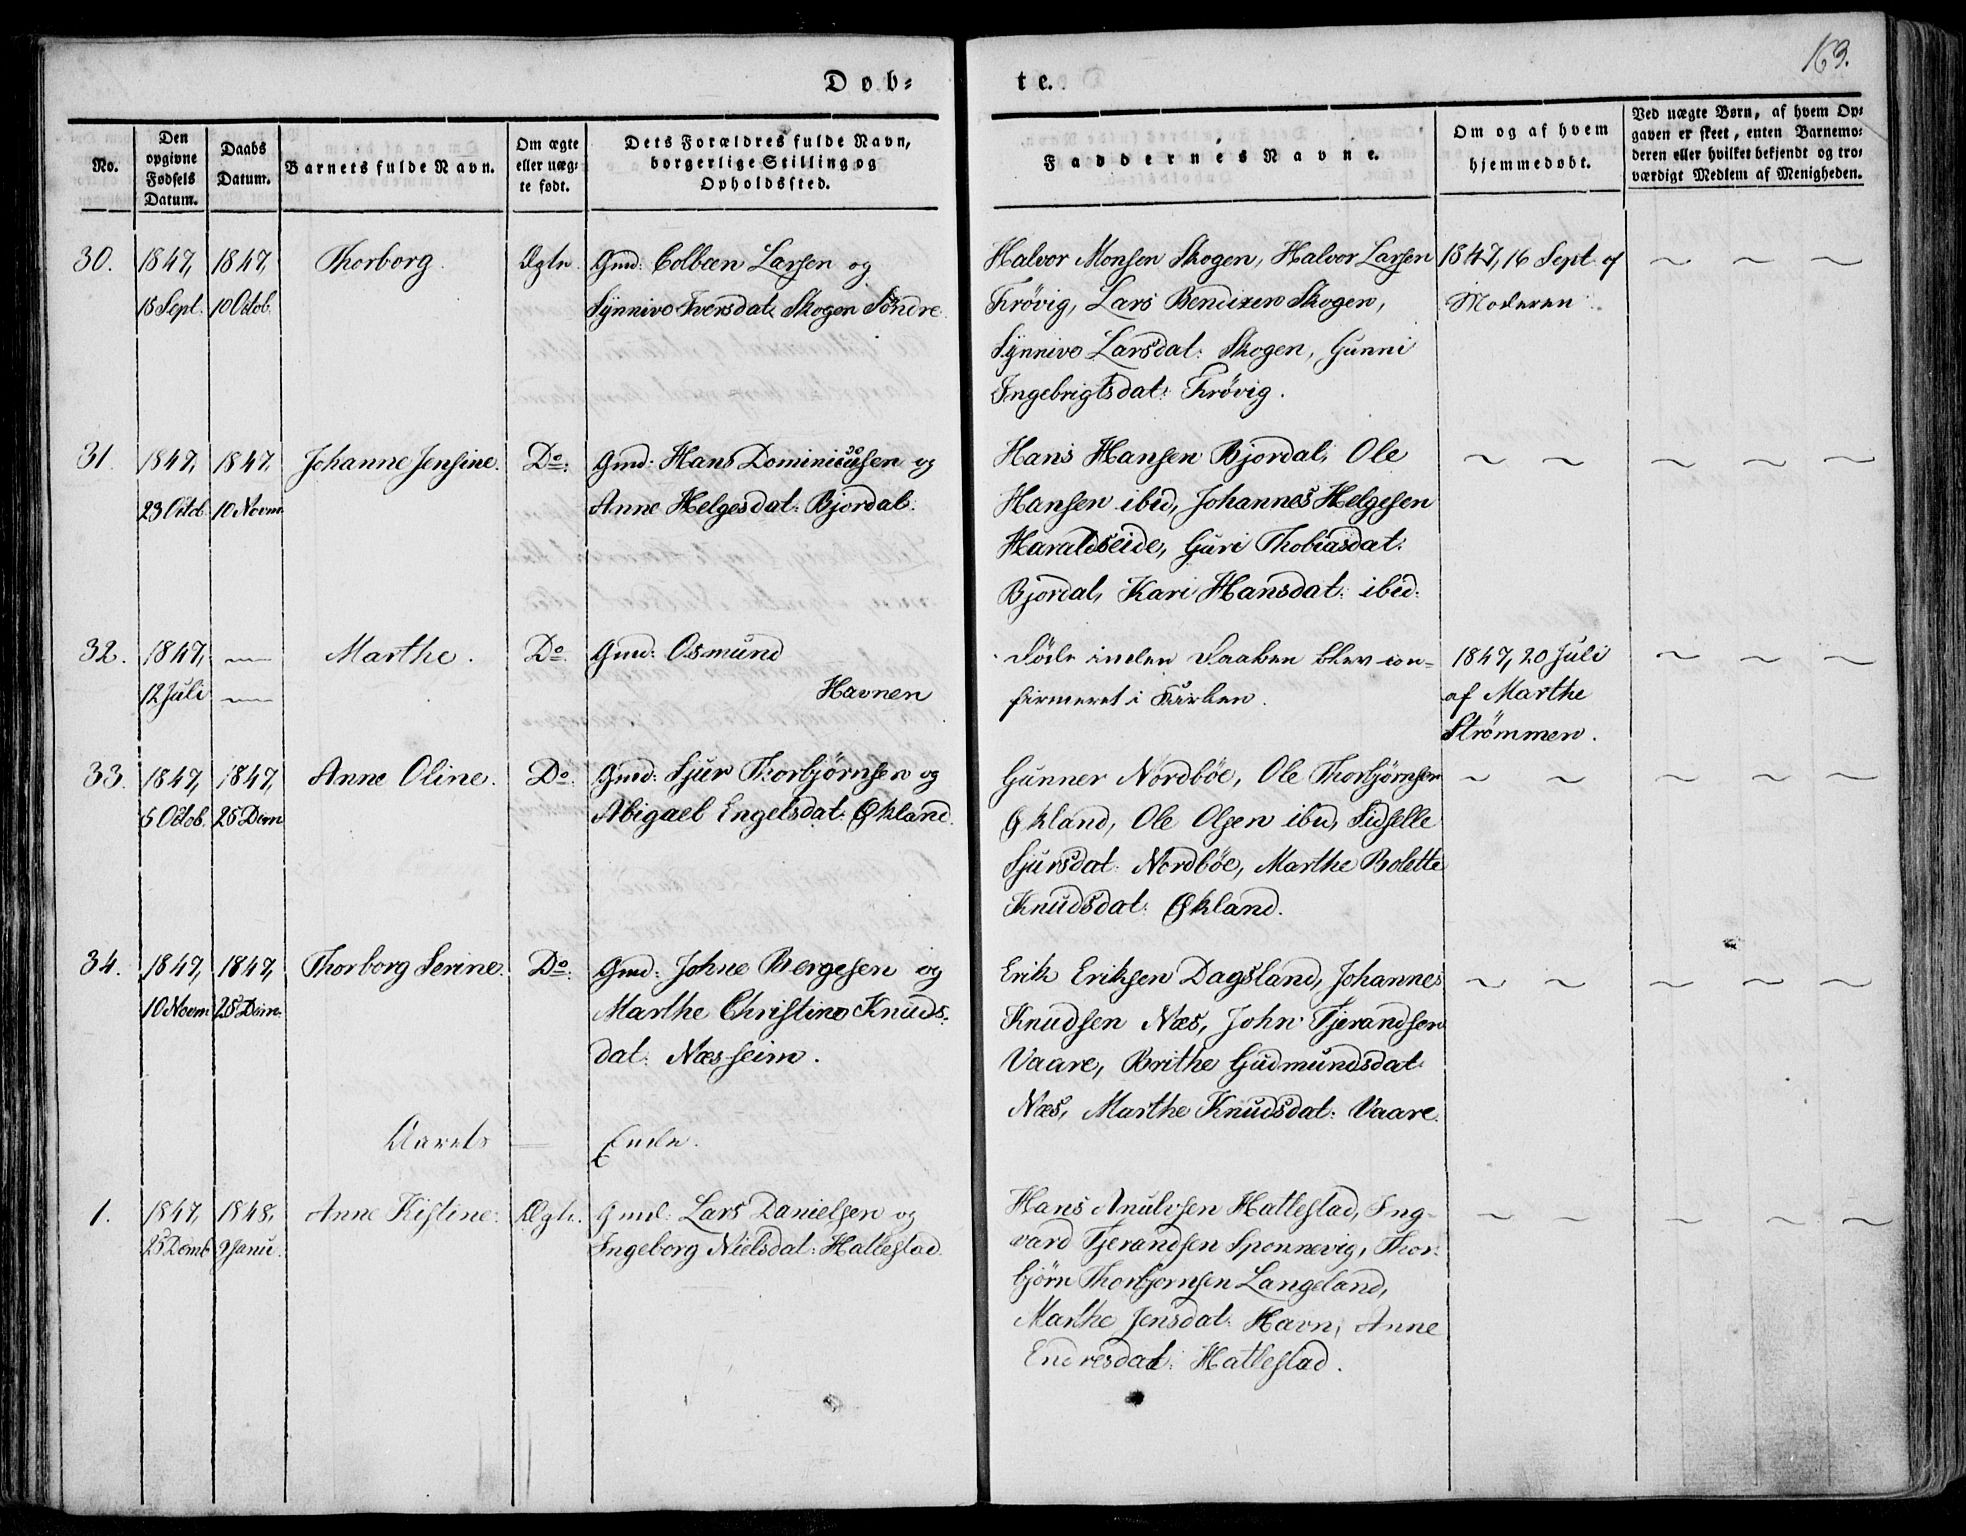 163.
Døb- te.
No. | Den opgivne Fødsels Datum. | Daabs Datum. | Barnets fulde Navn. | Om ægte eller uægte født. | Dets Forældres fulde Navn, borgerlige Stilling og Opholdssted. | Faddernes Navne. | Om og af hvem hjemmedøbt. | Ved uægte Børn, af hvem Opgaven er skeet, enten Barnemoderen eller hvilket bekjendt og troværdigt Medlem af Menigheden.
30. | 1847, | 1847, | Thorborg. | Ægte. | Gmd: Colbæn Larsen og | Halvor Monsen Skogen, Halvor Larsen | 1847, 16 Sept. af
15 Sept. | 10 Octob. | Synnive Iversdat. Skogen Søndre | Frøvig, Lars Bendixen Skogen, | Moderen
Synnive Larsdat: Skogen, Gunni
Ingebrigtsdat: Frøvig.
31. | 1847, | 1847, | Johanne Jensine. | Do: | Gmd: Hans Dominicussen og | Hans Hansen Bjordal, Ole
23 Octob | 10 Novm | Anne Helgesdat: Bjordal. | Hansen ibid, Johannes Helgesen
Haraldseide, Guri Thobiasdat:
Bjordal, Kari Hansdat: ibid.
32. | 1847, | — | Marthe. | Do: | Gmd: Osmund | Døde inden Daaben blev con- | 1847, 20 Juli
12 Juli | — | Havnen | firmeret i Kirken. | af Marthe
Strømmen.
33. | 1847, | 1847, | Anne Oline. | Do: | Gmd: Sjur Thorbjørnsen og | Gunner Nordbøe, Ole Thorbjørnsen
5 Octob. | 25 Dem | Abigael Engelsdat: Økland. | Økland, Ole Olsen ibid, Sidselle
Sjursdat: Nordbøe, Marthe Bolette
Knudsdat: Økland.
34. | 1847, | 1847, | Thorborg Serine. | Do: | Gmd: Johne Bergesen og | Erik Eriksen Dagsland, Johannes
10 Novm | 25 Dem. | Marthe Christine Knuds- | Knudsen Næs, John Tjerandsen
dat: Næsheim. | Vaare, Brithe Gudmundsdat
Næs, Marthe Knudsdat: Vaare.
Aarets — Ende.
1. | 1847, | 1848, | Anne Kistine. | Ægte. | Gmd: Lars Danielsen og | Hans Anulvsen Hattestad, Ing-
25 Demb | 9 Janu. | Ingeborg Nielsdat: Hattestad. | vard Tjerandsen Sponnevig, Thor-
bjørn Thorbjørnsen Langeland,
Marthe Jensdat: Havn, Anne
Endresdat: Hattestad.